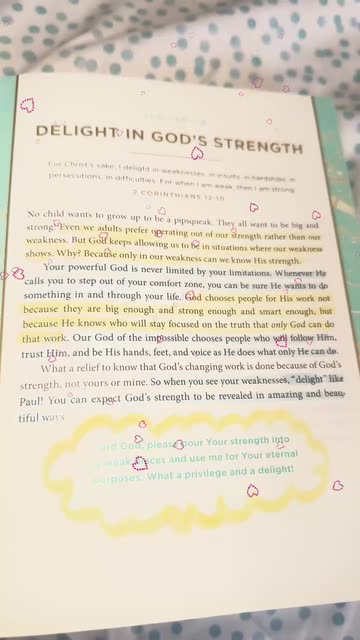 DELIGHT IN GOD'S STRENGTH
For Christ's sake, I delight in weaknesses, in insults, in hardships, in
persecutions, in difficulties. For when I am weak, then I am strong.
2 CORINTHIANS 12:10
No child wants to grow up to be a pipsqueak. They all want to be big and
strong. Even we adults prefer operating out of our strength rather than our
weakness. But God keeps allowing us to be in situations where our weakness
shows. Why? Because only in our weakness can we know His strength.
Your powerful God is never limited by your limitations. Whenever He
calls you to step out of your comfort zone, you can be sure He wants to do
something in and through your life. God chooses people for His work not
because they are big enough and strong enough and smart enough, but
because He knows who will stay focused on the truth that only God can do
that work. Our God of the impossible chooses people who will follow Him,
trust Him, and be His hands, feet, and voice as He does what only He can do.
What a relief to know that God's changing work is done because of God's
strength, not yours or mine. So when you see your weaknesses, "delight" like
Paul! You can expect God's strength to be revealed in amazing and beau-
tiful ways
God, please pour Your strength into
weak places and use me for Your eternal
purposes. What a privilege and a delight!